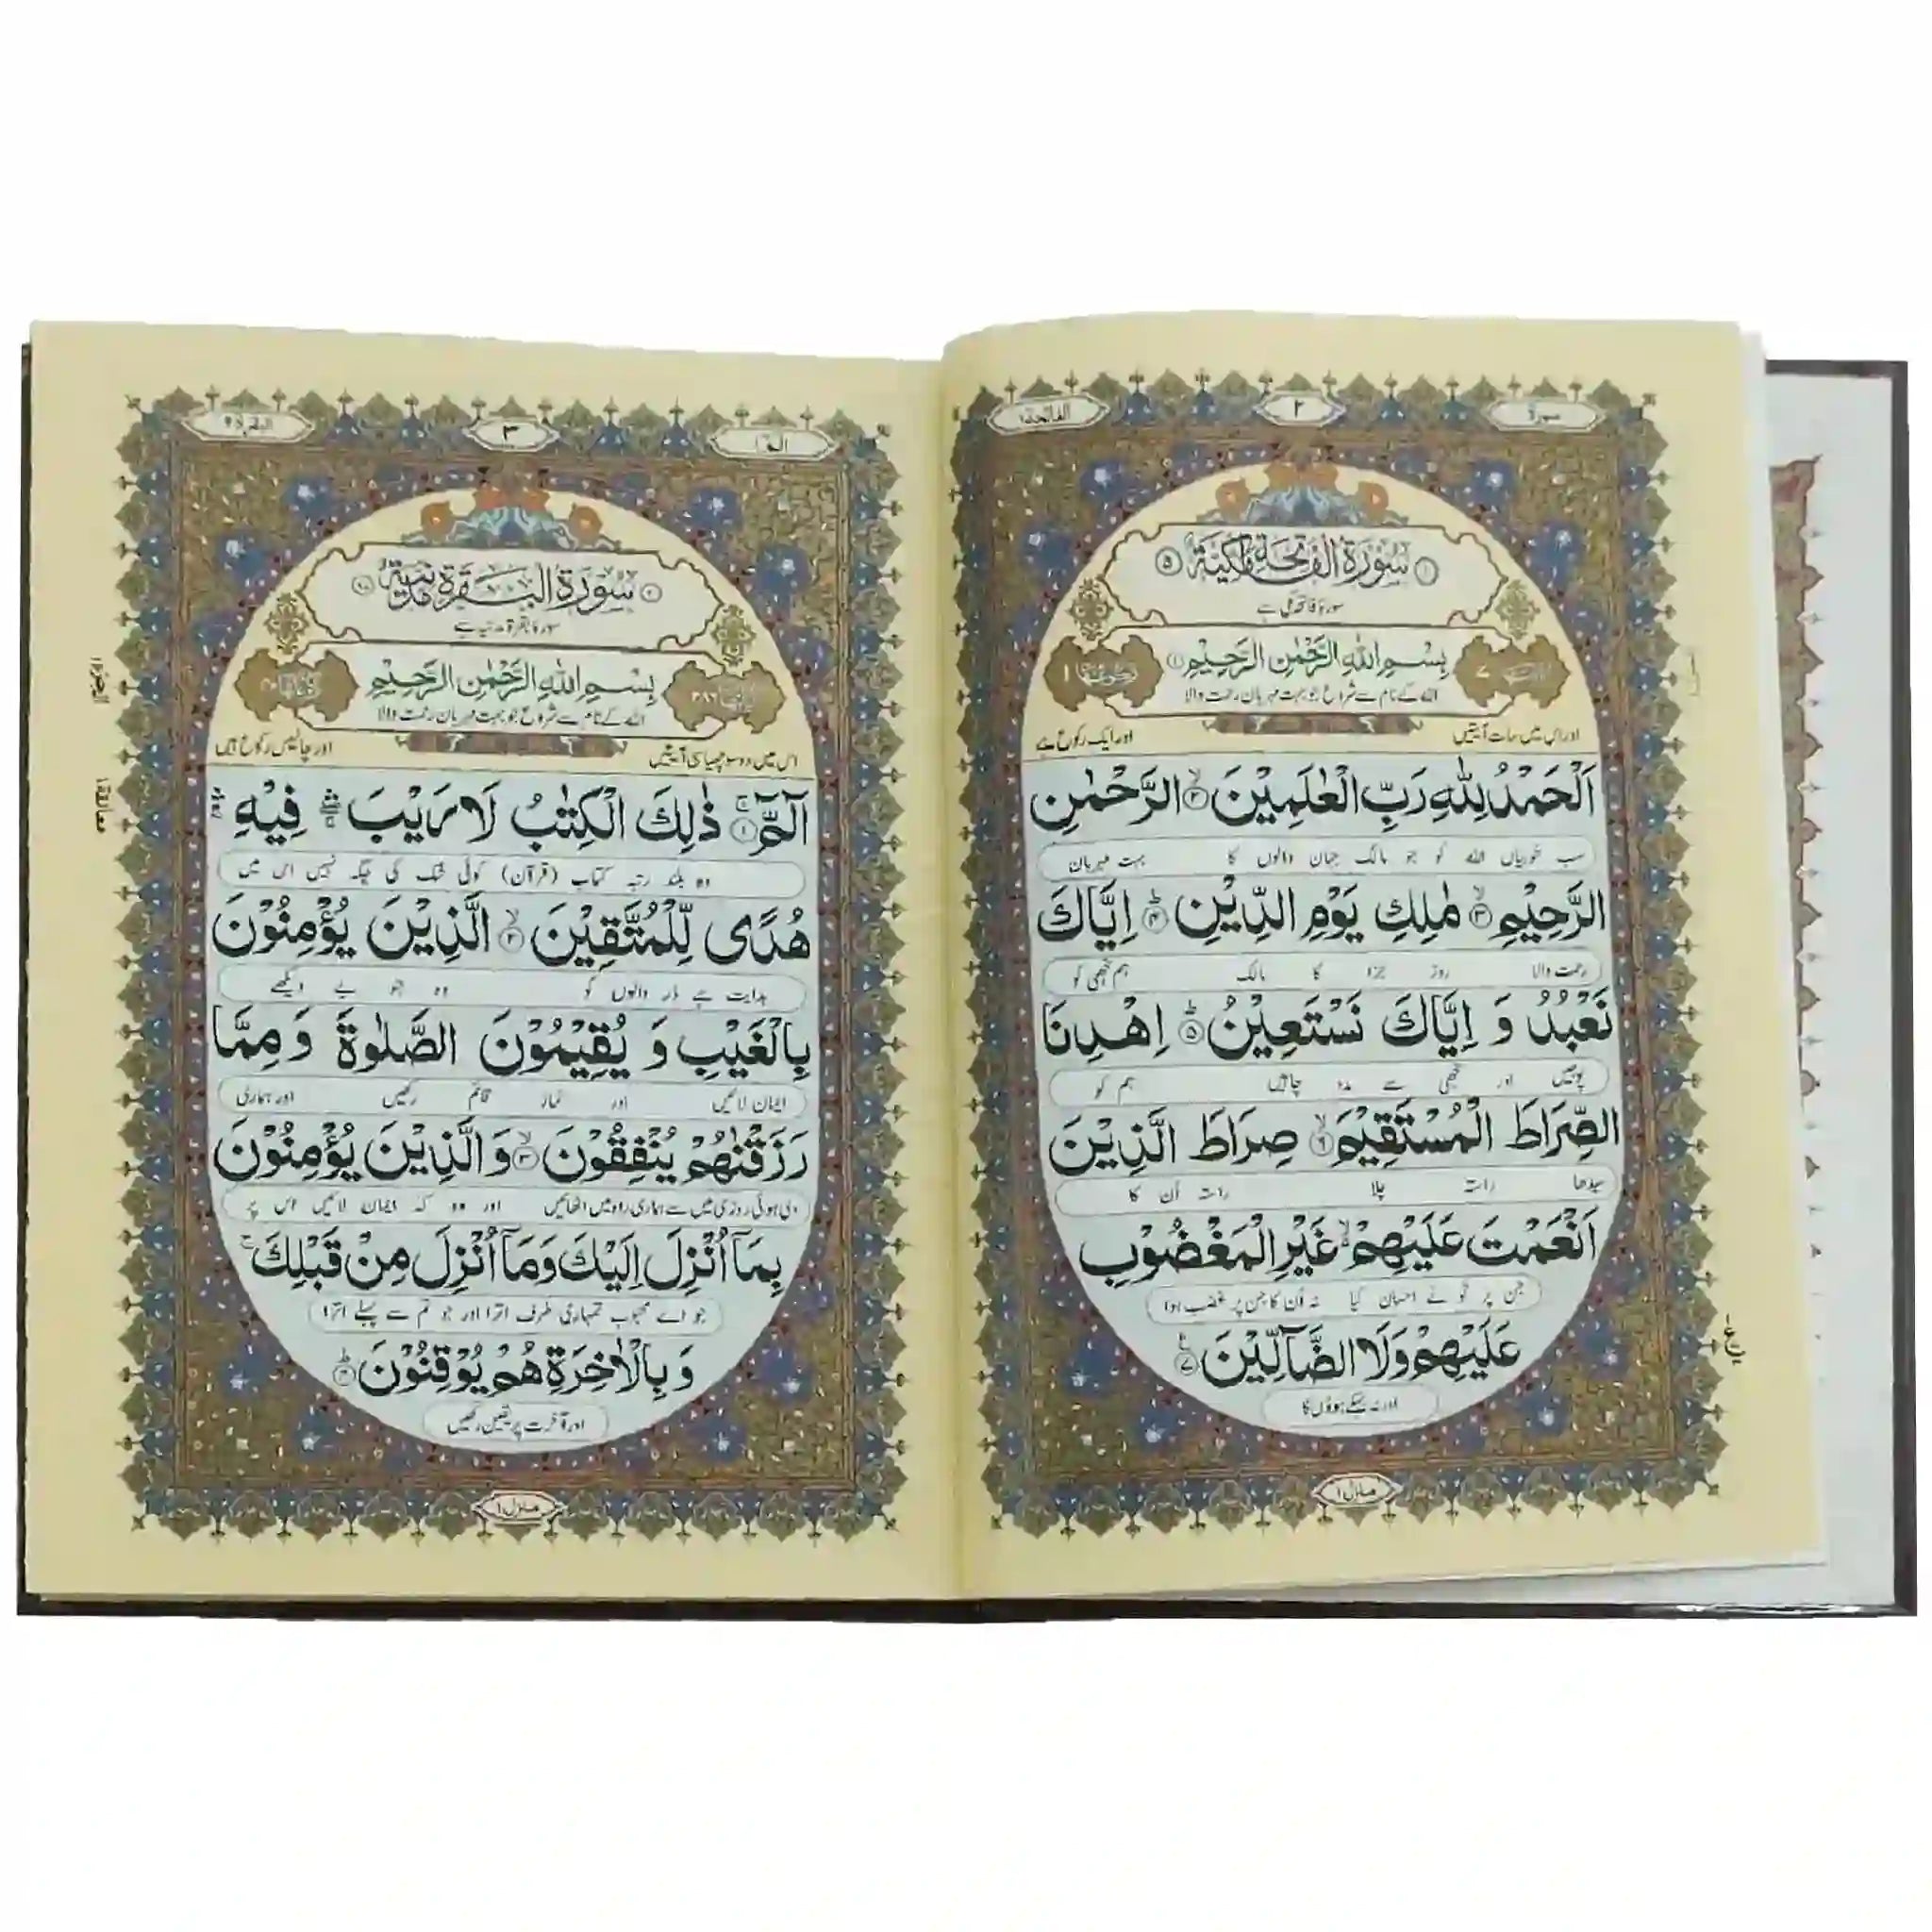 سورة
٢
الفاتحة ١
١ سُوْرَةُ الْفَاتِحَةِ مَكِّيَّةٌ ٥
سورۃ فاتحہ مکی ہے
بِسْمِ اللّٰهِ الرَّحْمٰنِ الرَّحِيْمِ ١
اللہ کے نام سے شروع جو بہت مہربان رحمت والا
اور اس میں سات آیتیں اور ایک رکوع ہے
اَلْحَمْدُ لِلّٰهِ رَبِّ الْعٰلَمِيْنَ ۙ٢ الرَّحْمٰنِ
سب خوبیاں اللہ کو جو مالک جہان والوں کا بہت مہربان
الرَّحِيْمِ ۙ٣ مٰلِكِ يَوْمِ الدِّيْنِ ؕ٤ اِيَّاكَ
رحمت والا روز جزا کا مالک ہم تجھی کو
نَعْبُدُ وَ اِيَّاكَ نَسْتَعِيْنُ ؕ٥ اِهْدِنَا
پوجیں اور تجھی سے مدد چاہیں ہم کو
الصِّرَاطَ الْمُسْتَقِيْمَ ۙ٦ صِرَاطَ الَّذِيْنَ
سیدھا راستہ چلا راستہ اُن کا
اَنْعَمْتَ عَلَيْهِمْ ۙ غَيْرِ الْمَغْضُوْبِ
جن پر تو نے احسان کیا نہ اُن کا جن پر غضب ہوا
عَلَيْهِمْ وَلَا الضَّآلِّيْنَ ٧
اور نہ بہکے ہوؤں کا
منزل ١
الٓمّٓ ١
٣
البقرة ٢
٢ سُوْرَةُ الْبَقَرَةِ مَدَنِيَّةٌ
سورۃ بقرۃ مدنیہ ہے
بِسْمِ اللّٰهِ الرَّحْمٰنِ الرَّحِيْمِ
اللہ کے نام سے شروع جو بہت مہربان رحمت والا
اس میں دو سو چھیاسی آیتیں اور چالیس رکوع ہیں
الٓمّٓ ۚ١ ذٰلِكَ الْكِتٰبُ لَا رَيْبَ ۛ فِيْهِ ۛ
وہ بلند رتبہ کتاب (قرآن) کوئی شک کی جگہ نہیں اس میں
هُدًى لِّلْمُتَّقِيْنَ ۙ٢ الَّذِيْنَ يُؤْمِنُوْنَ
ہدایت ہے ڈر والوں کو وہ جو بے دیکھے
بِالْغَيْبِ وَ يُقِيْمُوْنَ الصَّلٰوةَ وَ مِمَّا
ایمان لائیں اور نماز قائم رکھیں اور ہماری
رَزَقْنٰهُمْ يُنْفِقُوْنَ ۙ٣ وَ الَّذِيْنَ يُؤْمِنُوْنَ
دی ہوئی روزی میں سے ہماری راہ میں اٹھائیں اور وہ کہ ایمان لائیں اس پر
بِمَآ اُنْزِلَ اِلَيْكَ وَمَآ اُنْزِلَ مِنْ قَبْلِكَ ۚ
جو اے محبوب تمہاری طرف اترا اور جو تم سے پہلے اترا
وَ بِالْاٰخِرَةِ هُمْ يُوْقِنُوْنَ ؕ٤
اور آخرت پر یقین رکھیں
منزل ١
الجزء ١
معانقة ١